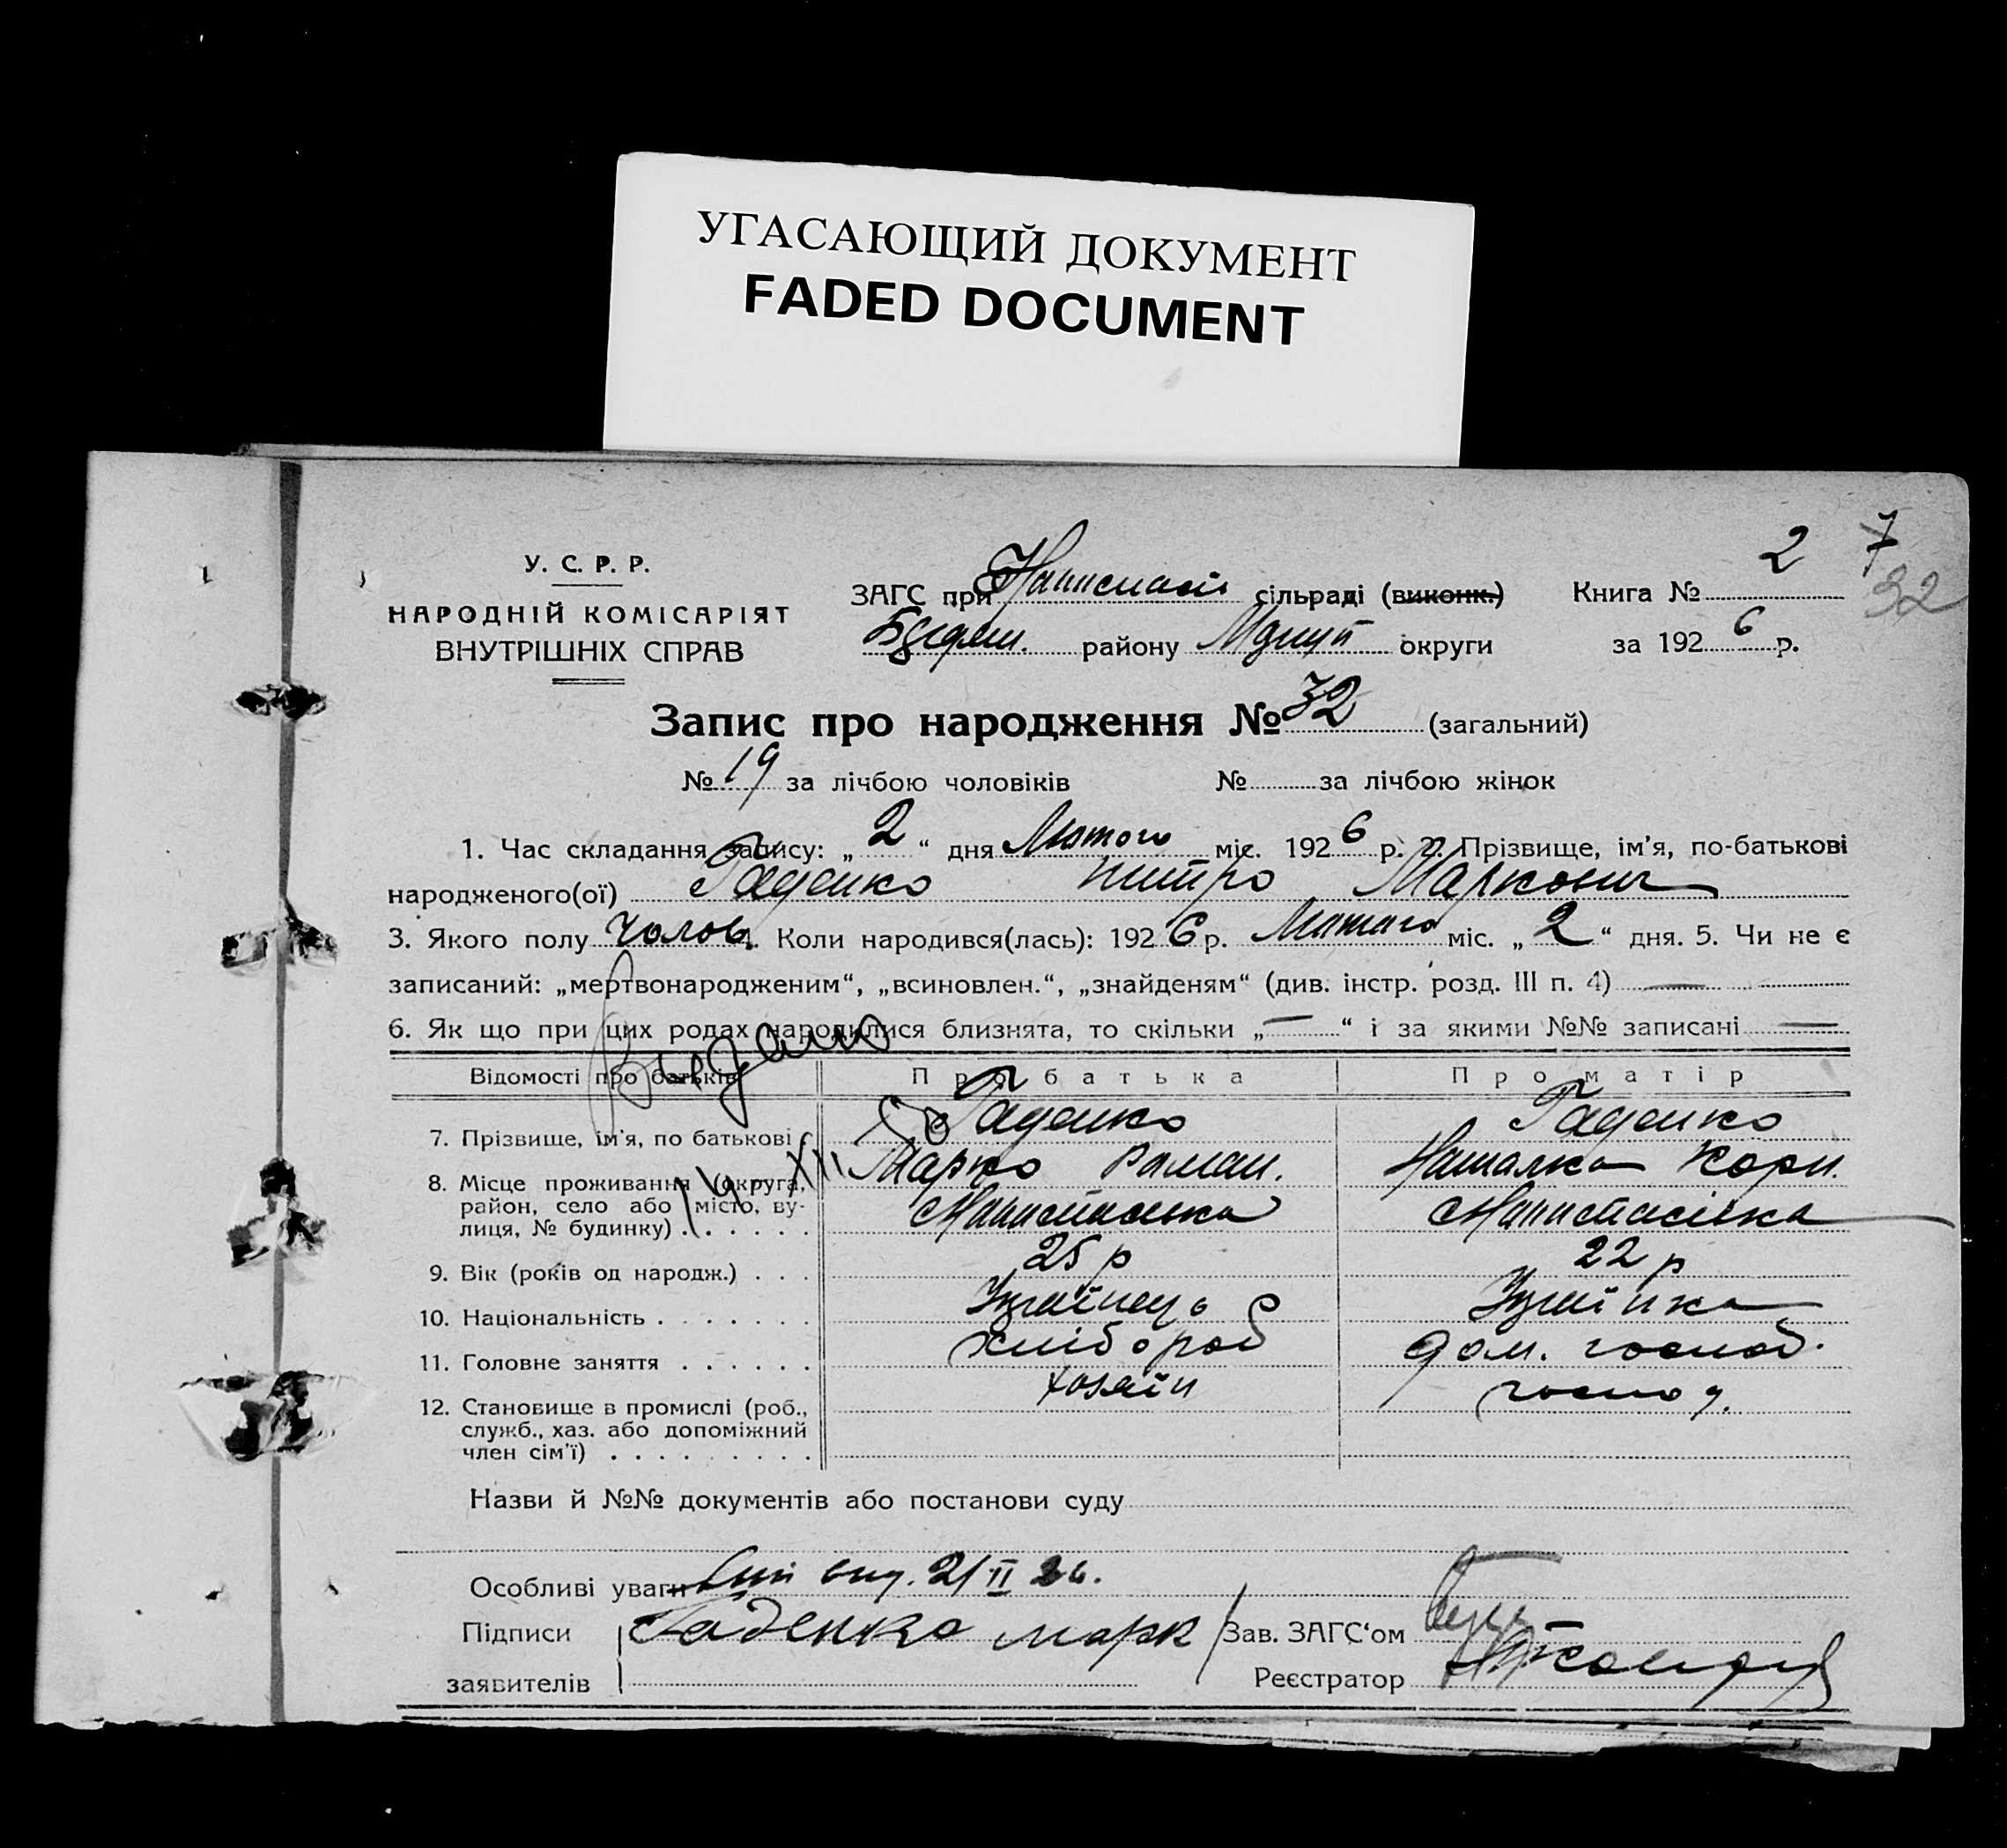 УГАСАЮЩИЙ ДОКУМЕНТ
FADED DOCUMENT
2 7
32
У. С. Р. Р.
НАРОДНІЙ КОМІСАРІЯТ
ВНУТРІШНІХ СПРАВ
ЗАГС при сільраді (виконк.) Книга №
району округи за 1926 р.
Запис про народження № 32 (загальний)
№ 19 за лічбою чоловіків № за лічбою жінок
1. Час складання запису: „ 2 “ дня Лютого міс. 1926 р. 2. Прізвище, ім’я, по-батькові
народженого(ої) Гаденко Маркович
3. Якого полу Чолов. 4. Коли народився(лась): 1926 р. Лютого міс. „ 2 “ дня. 5. Чи не є
записаний: „мертвонародженим“, „всиновлен.“, „знайденям“ (див. інстр. розд. III п. 4) —
6. Як що при цих родах народилися близнята, то скільки „ — “ і за якими №№ записані —
Відомості про батьків Про батька Про матір
7. Прізвище, ім’я, по батькові Гаденко Гаденко
Марко Роман. Наталка Корн.
8. Місце проживання (округа,
район, село або місто, ву-
лиця, № будинку)
9. Вік (років од народж.) . . . 25 р 22 р
10. Національність . . . . . . . Українець Українка
11. Головне заняття . . . . . . хлібороб дом. господ.
хозяїн господ.
12. Становище в промислі (роб.,
служб., хаз. або допоміжний
член сім’ї) . . . . . . . . .
Назви й №№ документів або постанови суду
Особливі уваги 2/II 26.
Підписи Гаденко марк Зав. ЗАГС‘ом
заявителів Реєстратор